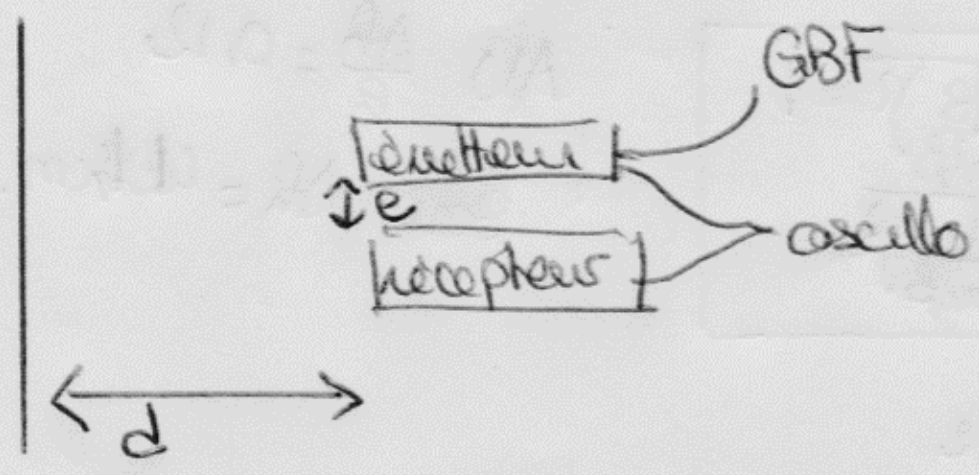 GBF
émetteur
e
oscillo
récepteur
d